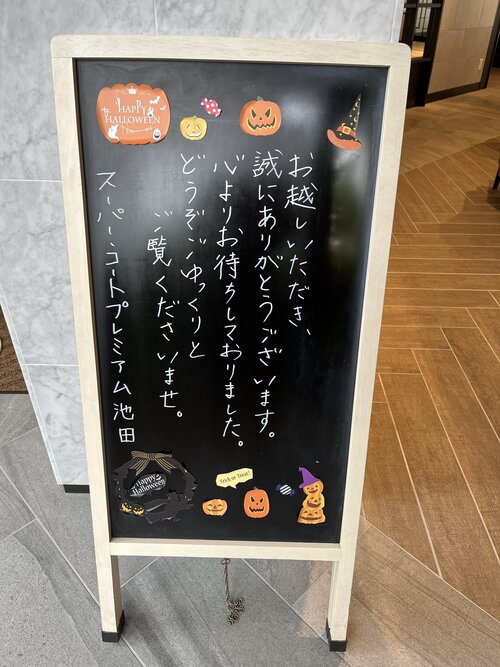 HAPPY
HALLOWEEN
お越しいただき、
誠にありがとうございます。
心よりお待ちしておりました。
どうぞごゆっくりと
ご覧くださいませ。
スーパー・コートプレミアム池田
Happy
Halloween
Trick or Treat!